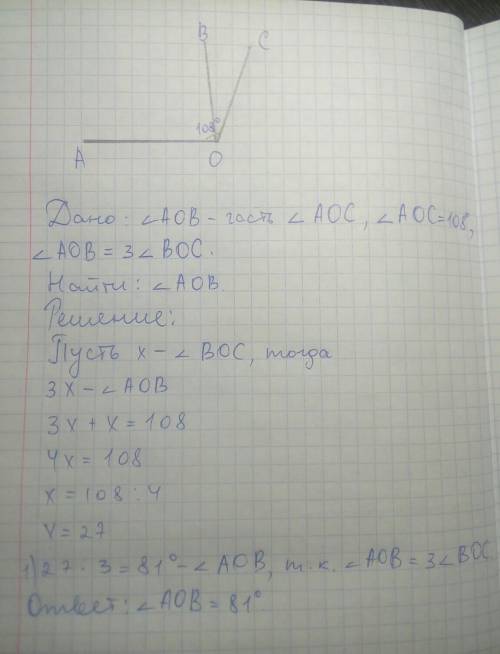 B
C
108°
A
O
Дано: ∠AOB - часть ∠AOC, ∠AOC=108,
∠AOB = 3∠BOC.
Найти: ∠AOB.
Решение:
Пусть x - ∠BOC, тогда
3x - ∠AOB
3x + x = 108
4x = 108
x = 108 : 4
x = 27
1) 27 · 3 = 81° - ∠AOB, т.к. ∠AOB = 3∠BOC
Ответ: ∠AOB = 81°